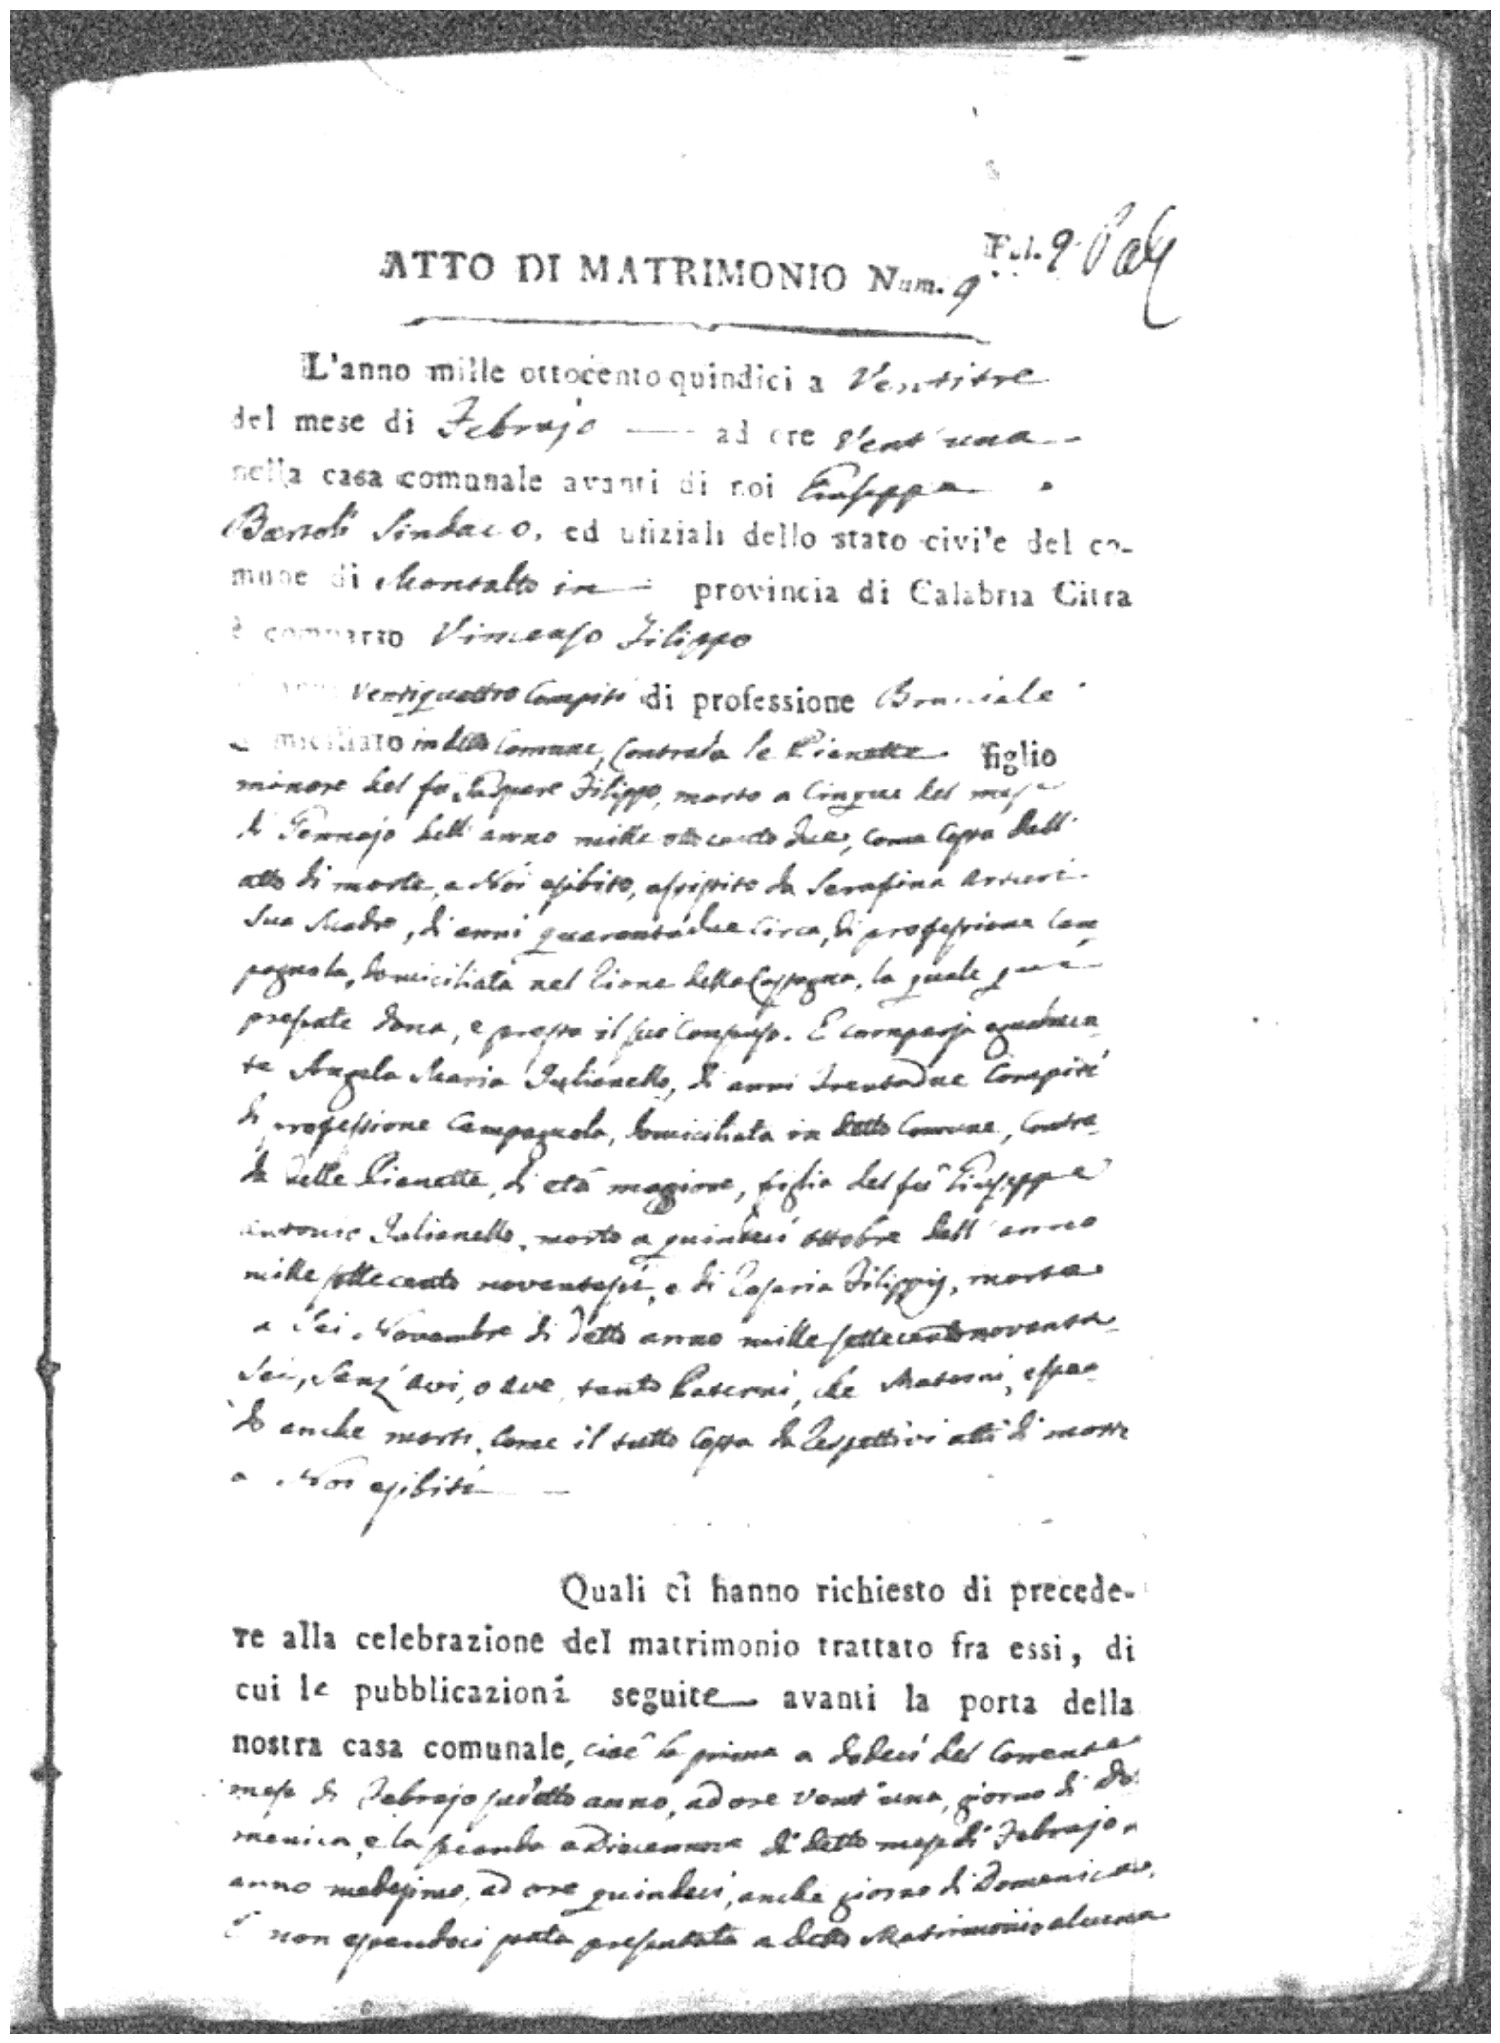 Fol. 9
ATTO DI MATRIMONIO Num. 9
L'anno mille ottocento quindici a Ventitre
del mese di Febrajo — ad ore Vent'una
nella casa comunale avanti di noi Giuseppe
Bartoli Sindaco, ed ufiziali dello stato civile del co-
mune di Montalto in provincia di Calabria Citra
è comparso Vincenso Filippo
anni Ventiquattro Compiti di professione Bracciale
domiciliato in detto Comune, Contrada le Pianette figlio
minore del fu Gaspare Filippo, morto a Cinque del mese
di Gennajo dell'anno mille ottocento due, come Costa dall'
atto di morte, a Noi esibito, assistito da Serafina Arturi
Sua Madre, di anni quarantadue Circa, di professione Cam
pagnola, domiciliata nel Rione della, la quale
presente dona, e presta il suo Consenso. È comparsa egualmen
te Angela Maria Julianello, di anni trentadue Compiti
di professione Campagnola, domiciliata in detto Comune, Contra
da delle Pianette, di età maggiore, figlia del fù Giuseppe
Antonio Julianello, morto a quindeci ottobre dell'anno
mille settecento novantasei, e di Rosaria Filippis, morta
a Sei Novembre di detto anno mille settecentonovanta
Sei, Senz'avi, o ave, tanto Paterni, che Materni, essen
do anche morti, Come il tutto Costa da respettivi atti di morte
a Noi esibiti
Quali ci hanno richiesto di precede-
re alla celebrazione del matrimonio trattato fra essi, di
cui le pubblicazioni seguite avanti la porta della
nostra casa comunale, cioè la prima a dodeci del Corrente
mese di Febrajo sudetto anno, ad ore vent'una, giorno di Do
menica, e la seconda a Diecennove di detto mese di Febrajo
anno medesimo, ad ore quindeci, anche giorno di Domenica,
E non essendoci stata presentata a detto Matrimonio alcuna